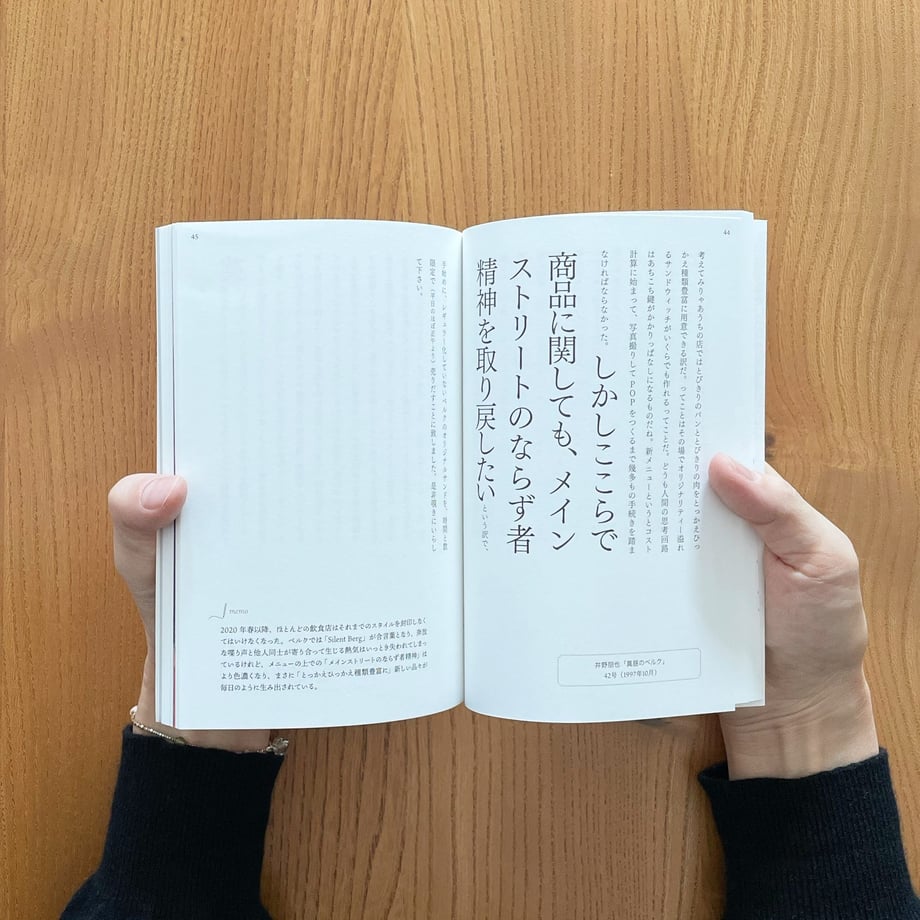 44
考えてみりゃあうちの店ではとびきりのパンととびきりの肉をとっかえひっ
かえ種類豊富に用意できる訳だ。ってことはその場でオリジナリティー溢れ
るサンドウィッチがいくらでも作れるってことだ。どうも人間の思考回路
はあちこち鍵がかかりっぱなしになるものだね。新メニューというとコスト
計算に始まって、写真撮りしてPOPをつくるまで幾多もの手続きを踏ま
なければならなかった。しかしここらで
商品に関しても、メイン
ストリートのならず者
精神を取り戻したいという訳で、
井野朋也「真昼のベルク」
42号（1997年10月）
45
手始めに、レギュラー化していないベルクのオリジナルサンドを、時間と数
限定で（平日のほぼ正午より）売りだすことに致しました。是非覗きにいらし
て下さい。
memo
2020年春以降、ほとんどの飲食店はそれまでのスタイルを封印しなく
てはいけなくなった。ベルクでは「Silent Berg」が合言葉となり、奔放
な喋り声と他人同士が寄り合って生じる熱気はいっとき失われてしまっ
ているけれど、メニューの上での「メインストリートのならず者精神」は
より色濃くなり、まさに「とっかえひっかえ種類豊富に」新しい品々が
毎日のように生み出されている。